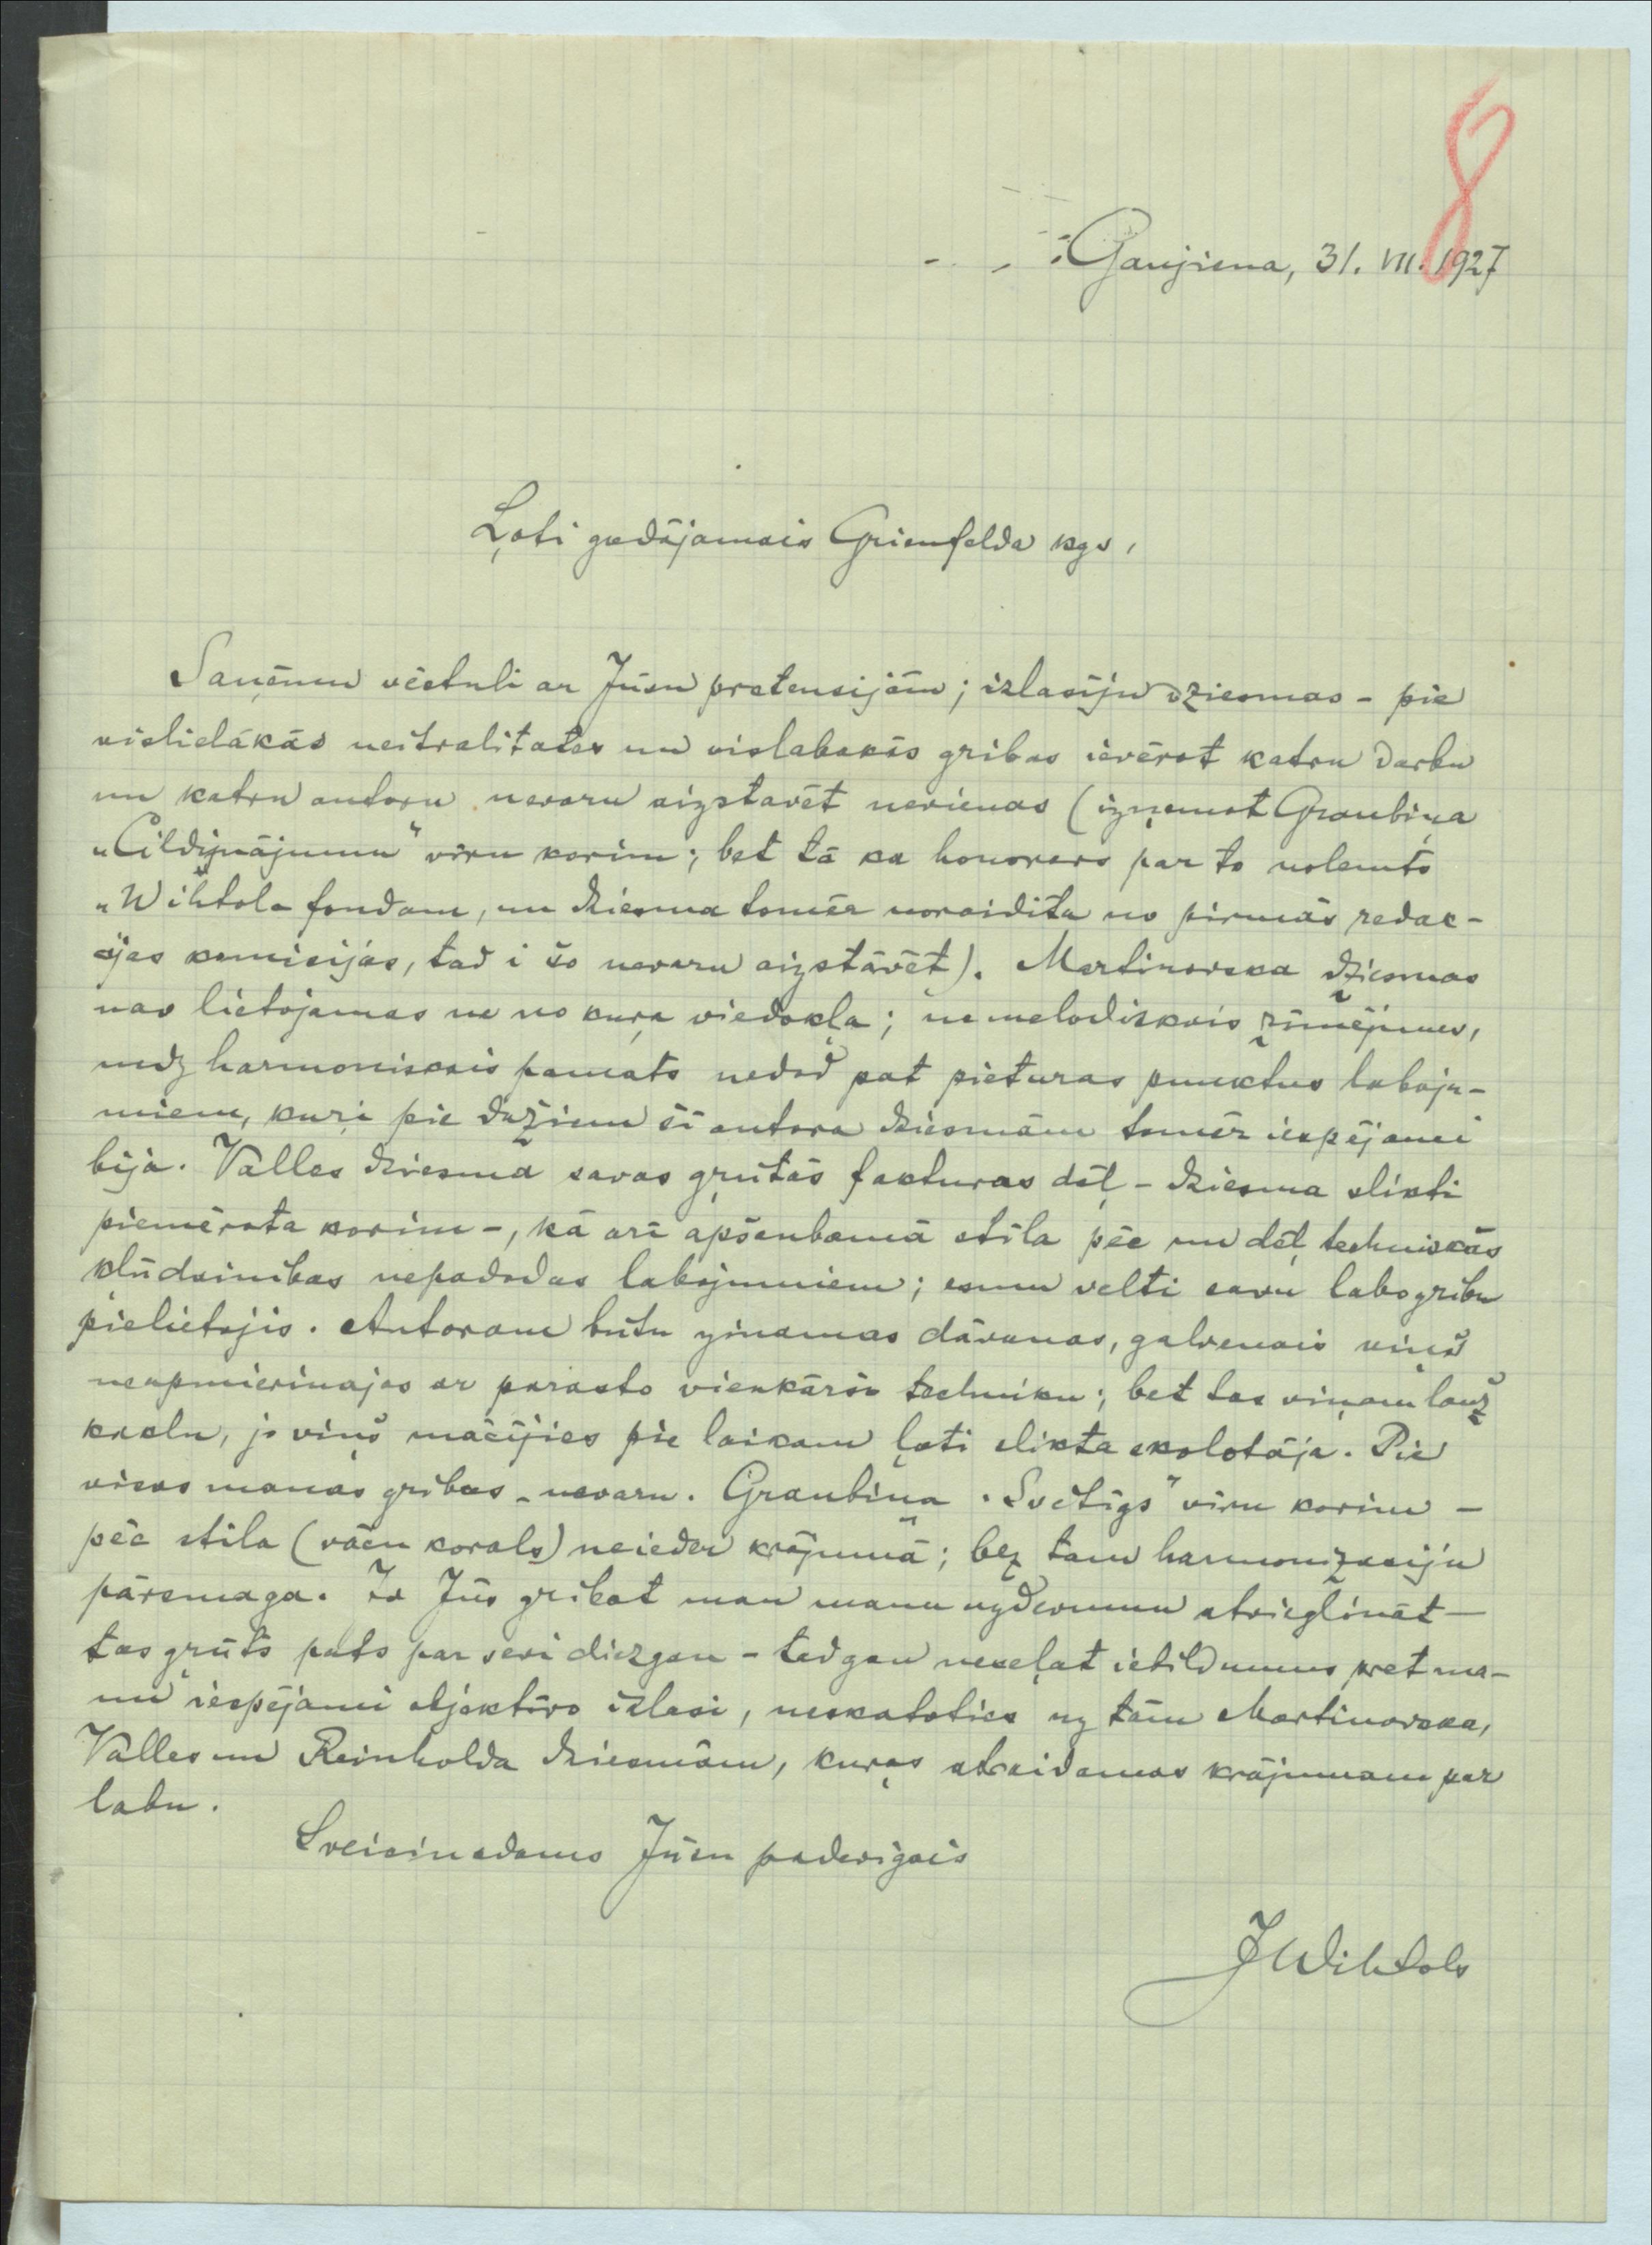 8
Gaujiena, 31. VII. 1927
Ļoti godājamais Grienfelda kgs,
Saņēmu vēstuli ar Jūsu pretensijām; izlasīju dziesmas - pie
vislielākās neitralitates un vislabakās gribas ievērot katru darbu
un katru autoru nevaru aizstavēt nevienas (izņemot Graubiņa
„Cildinājumu" vīru korim; bet tā ka honorars par to nolemts
„Wihtola fondam, un dziesma tomēr noraidita no pirmās redak-
cijas komisijas, tad i šo nevaru aizstāvēt). Martinovska dziesmas
nav lietojamas ne no kuŗa viedokļa; ne melodiskais zīmējums,
nedz harmoniskais pamats nedod pat pieturas punktus laboju-
miem, kuŗi pie dažiem šī autora dziesmām tomēr iespējami
bija. Valles dziesma savas grūtās fakturas dēļ - dziesma slikti
piemērota korim -, kā arī apšaubamā stila pēc un dēļ techniskās
kļūdainibas nepadodas labojumiem; esmu velti savu labo gribu
pielietojis. Autoram būtu zinamas dāvanas, galvenais viņš
neapmierinajas ar parasto vienkāršo techniku; bet tas viņam lauž
kaklu, jo viņš mācījies pie laikam ļoti slikta skolotāja. Pie
visas manas gribas - nevaru. Graubiņa „Svētīgs" vīru korim -
pēc stila (vācu korals) neieder krājumā; bez tam harmonizaciju
pārsmaga. Ja Jūs gribat man manu uzdevumu atvieglināt —
tas grūts pats par sevi diezgan - tad gan neceļat iebildumus pret ma-
nu iespējami objektīvo izlasi, neskatoties uz tām Martinovska,
Valles un Reinholda dziesmām, kuŗas atraidamas krājumam par
labu.
Sveicinadams Jūsu padevigais
JWihtols